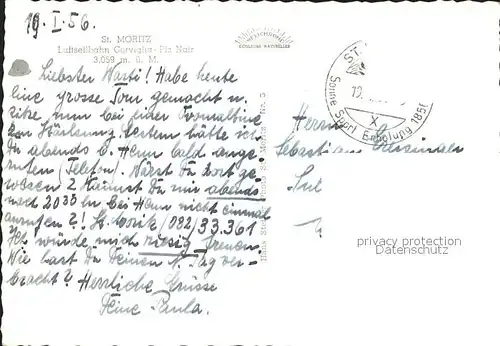 19. I. 56.
St. MORITZ
Luftseilbahn Corviglia - Piz Nair
3,059 m. ü. M.
Liebster Wasti! Habe heute
eine grosse Tour gemacht u.
sitze nun bei einer Ovomaltine
zur Stärkung. Gestern hätte ich
Du abends b. Henn bald ange-
rufen (Telefon). Wärst Du dort ge-
wesen? Kannst Du mir abends
nach 20 30 bei Henn nicht einmal
anrufen?! St. Moritz /082/33.361
Ich würde mich riesig freuen.
Wie hast Du Deinen 1. Tag ver-
bracht? Herrliche Grüsse
Deine Paula.
ST.
Sonne Sport Erholung 1856
X
Herrn
Sebastian
privacy protection
Datenschutz